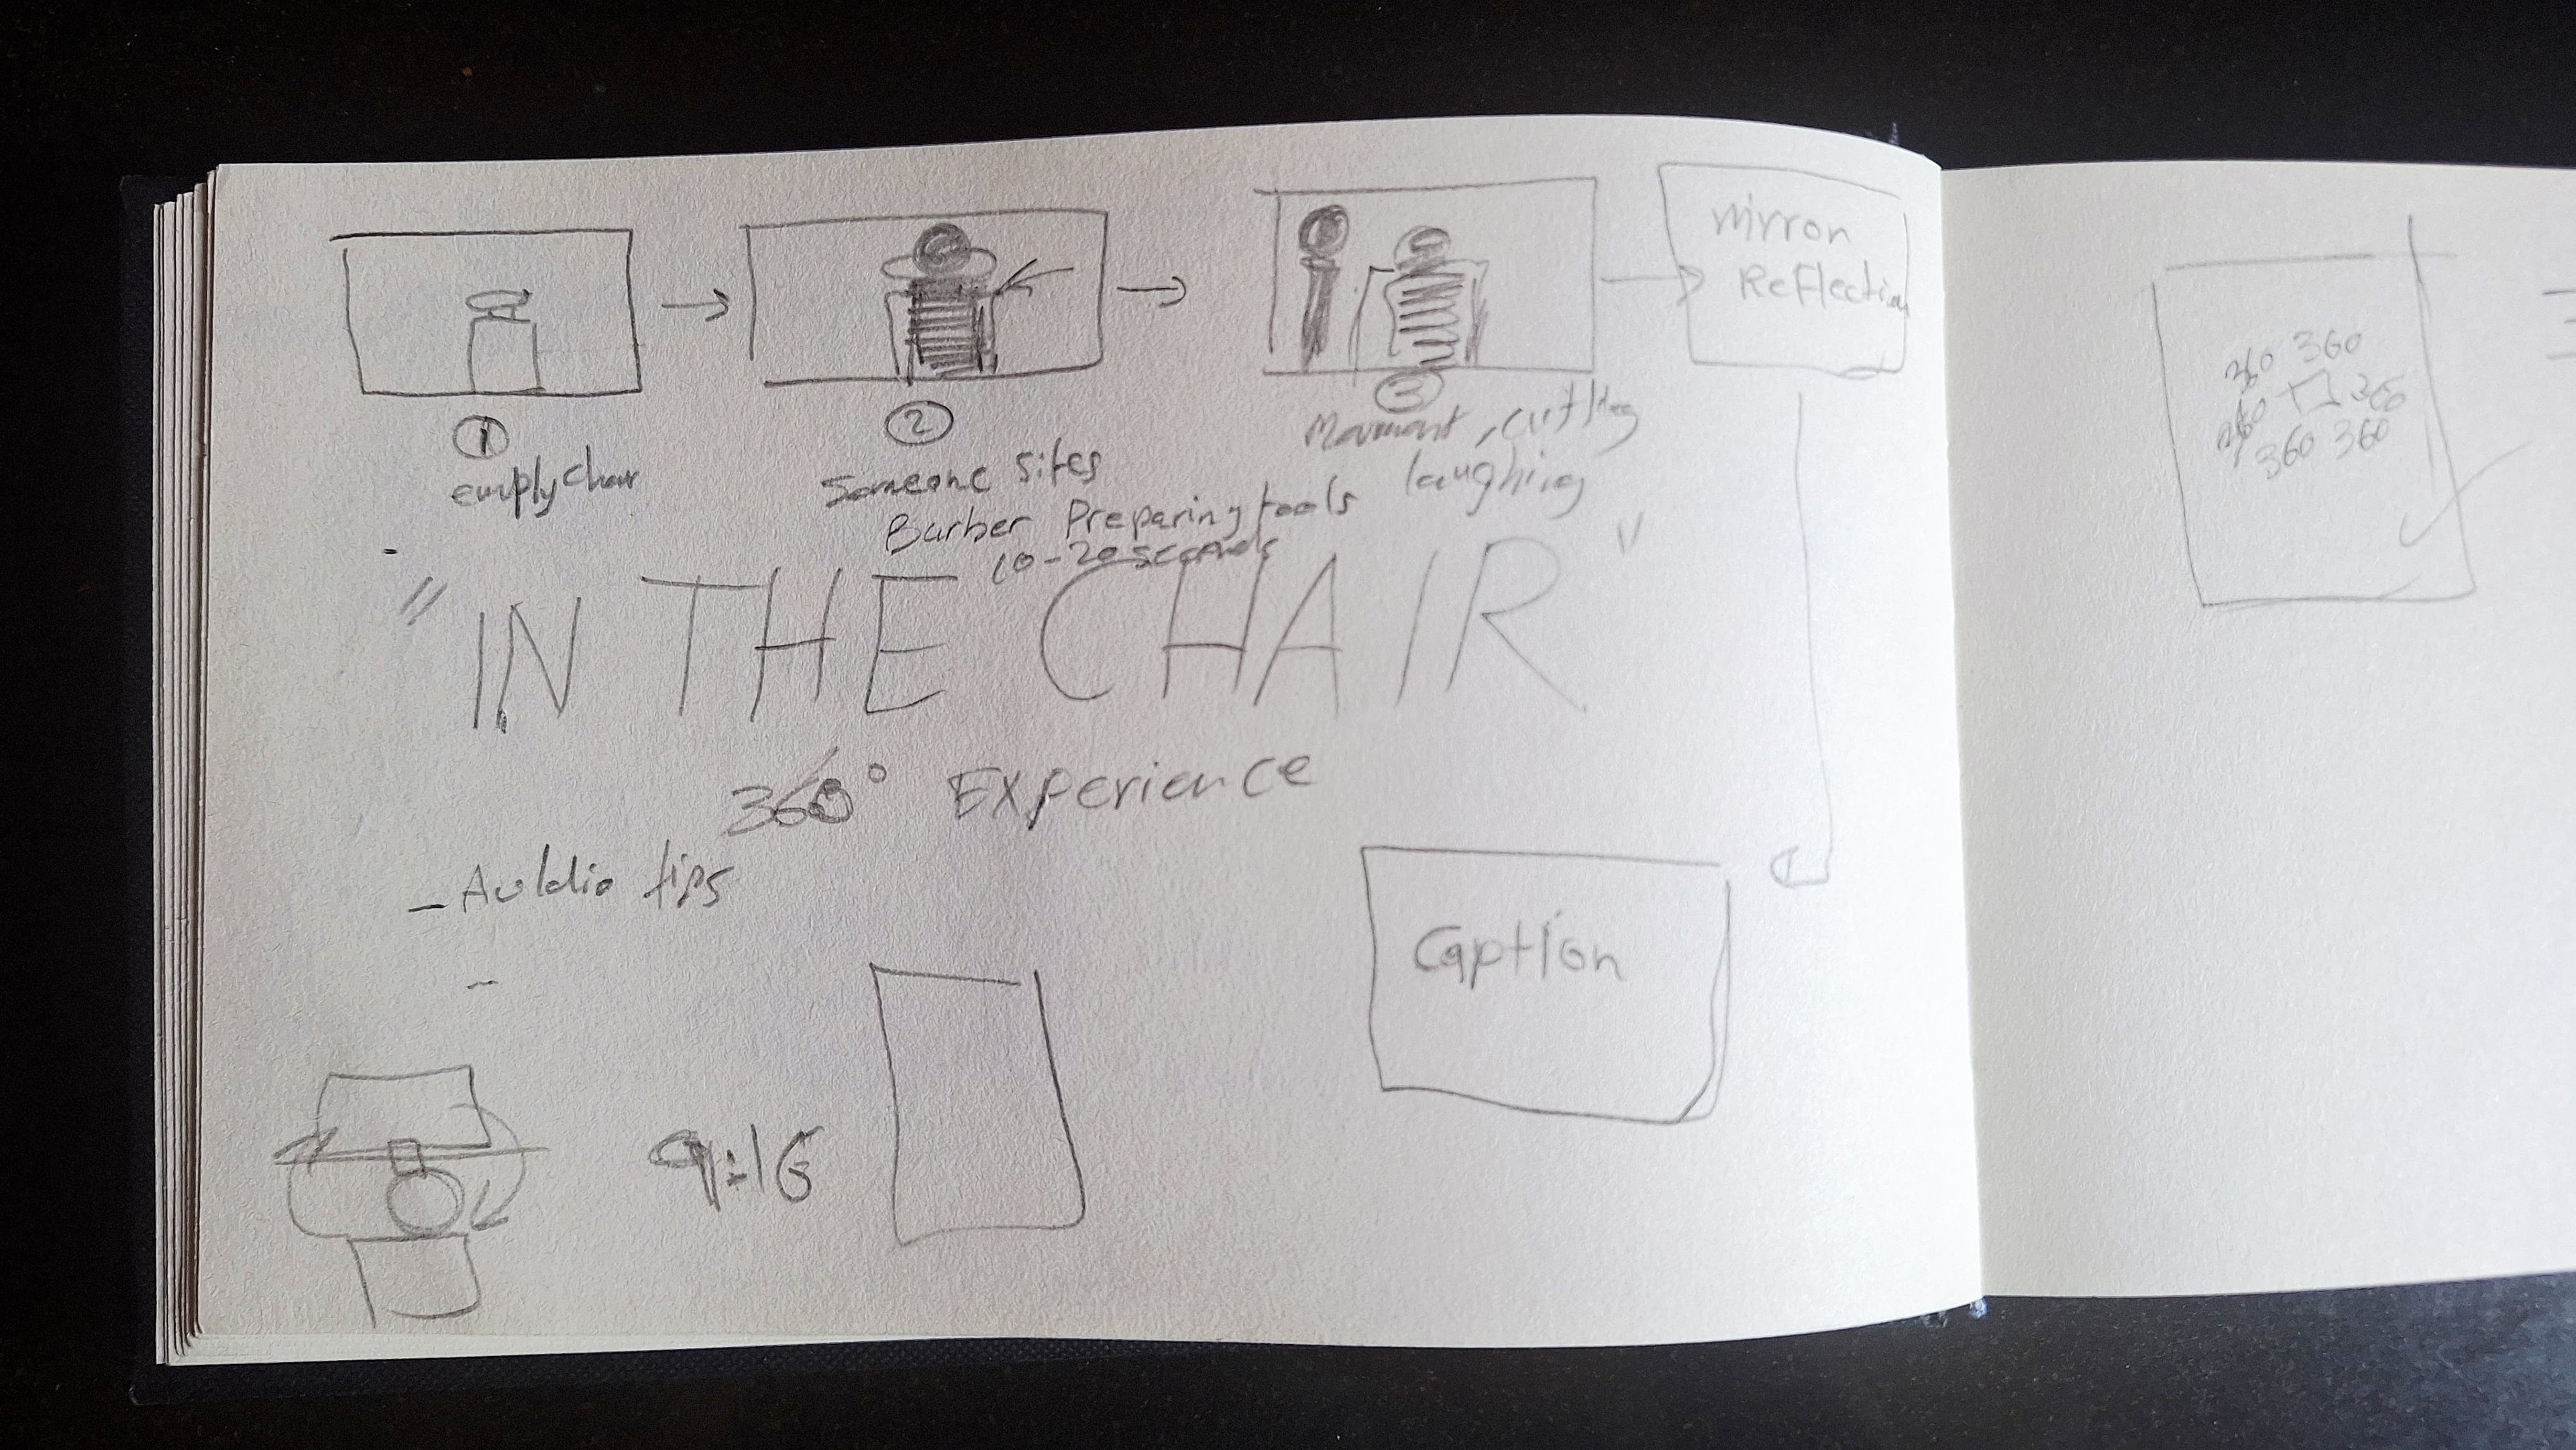 ① 
empty chair
②
Someone Sites
Barber Preparing tools
10-20 seconds
③
, cutting
laughing
Mirron
Reflection
"IN THE CHAIR"
360° Experience
- Auldio tips
-
9:16
Caption
360 360
360 360
360 360